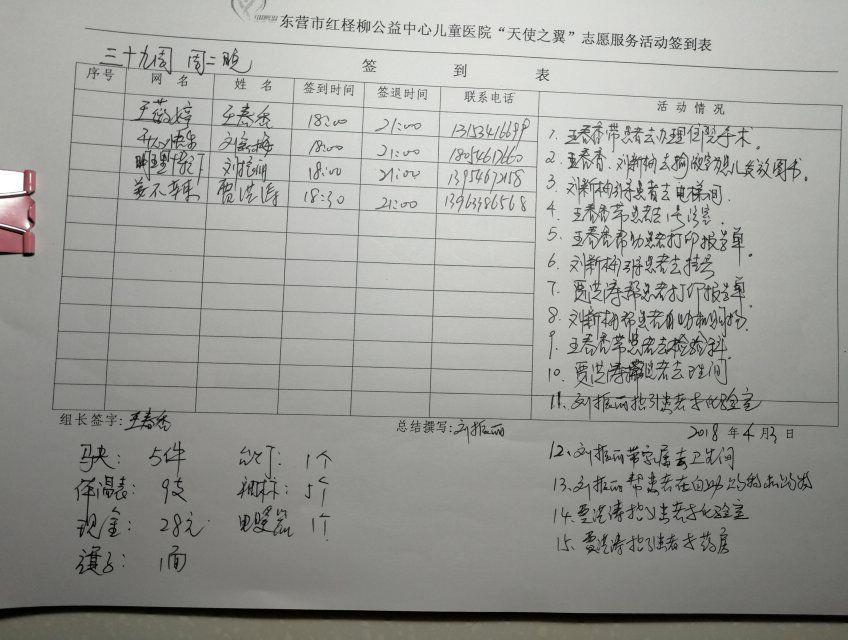 东营市红柽柳公益中心儿童医院“天使之翼”志愿服务活动签到表
三十九周 周二晚
签 到 表
序号 网 名 姓 名 签到时间 签退时间 联系电话 活 动 情 况
王春香 18:00 21:00 13153416699
刘新梅 18:00 21:00 18054617660
刘振丽 18:00 21:00 13954672158
贾洪涛 18:30 21:00 13963386568
1. 王春香带患者去办理住院手术.
2. 王春香、刘新梅去输液室为患儿发放图书.
3. 刘新梅引导患者去电梯间.
4. 王春香带患者去
5. 王春香帮助患者打印报告单.
6. 刘新梅 患者去挂号
7. 贾洪涛帮患者打印报告单.
8. 刘新梅帮患者自助机购物.
9. 王春香带患者去检验科.
10. 贾洪涛 患者去卫生间
11. 刘振丽指引患者去化验室
组长签字: 王春香 总结撰写: 刘振丽 2018 年 4 月 3 日
12. 刘振丽带家属去卫生间
13. 刘振丽帮患者在自助购物机购物
14. 贾洪涛指引患者去化验室
15. 贾洪涛指引患者去药房
马夹: 5件 1个
体温表: 9支 5个
现金: 28元 1个
旗子: 1面